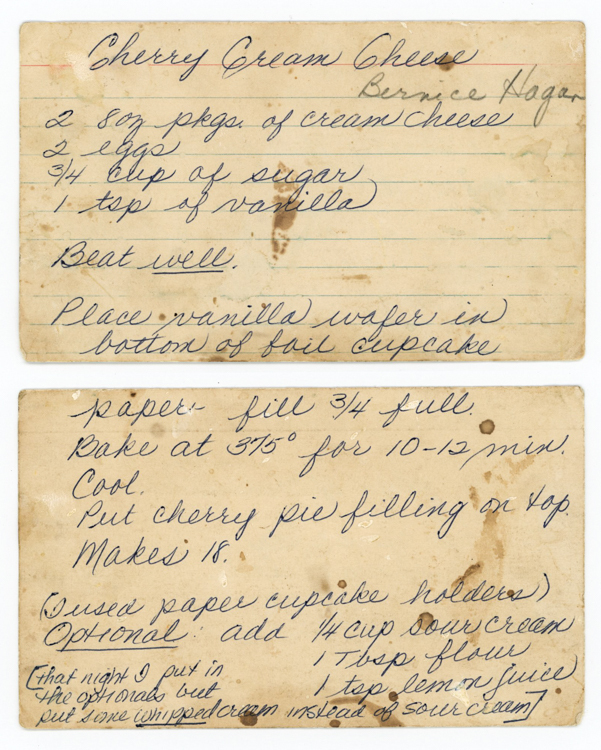 Cherry Cream Cheese
Bernice Hagar
2 8oz pkgs. of cream cheese
2 eggs
3/4 cup of sugar
1 tsp of vanilla
Beat well.
Place vanilla wafer in
bottom of foil cupcake
paper - fill 3/4 full.
Bake at 375° for 10-12 min.
Cool.
Put cherry pie filling on top.
Makes 18.
(I used paper cupcake holders)
Optional: add 1/4 cup sour cream
1 Tbsp flour
1 tsp lemon juice
[that night I put in
the optionals but
put some whipped cream instead of sour cream]